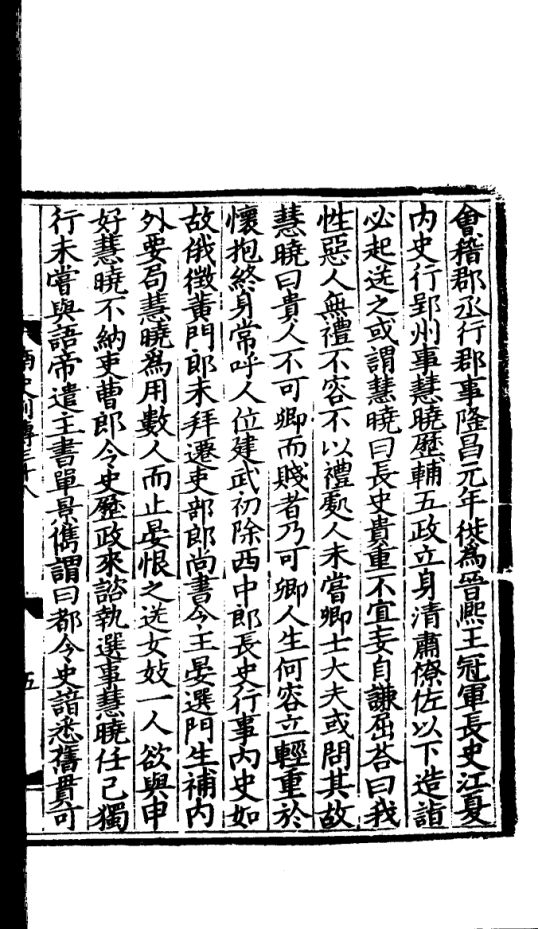 會稽郡丞行郡事隆昌元年徙為晉熙王冠軍長史江夏
内史行郢州事慧曉歷輔五政立身清肅僚佐以下造詣
必起送之或謂慧曉曰長史貴重不宜妄自謙屈荅曰我
性惡人無禮不容不以禮處人未嘗卿士大夫或問其故
慧曉曰貴人不可卿而賤者乃可卿人生何容立輕重於
懷抱終身常呼人位建武初除西中郎長史行事内史如
故俄徵黃門郎未拜遷吏部郎尚書令王晏選門生補内
外要局慧曉為用數人而止晏恨之送女妓一人欲與申
好慧曉不納吏曹郎令史歷政來諮執選事慧曉任己獨
行未嘗與語帝遣主書單景儁謂曰都令史諳悉舊貫可
五